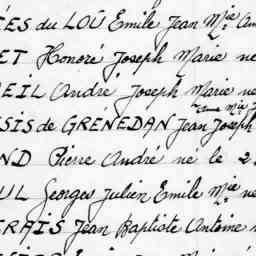 ÉES du LOÛ Emile Jean Mie Am
ET Honoré Joseph Marie ne
REIL André Joseph Marie ne
Anne Mie J
SIS de GRÉNEDAN Jean Joseph
ND Pierre André ne le 2
UL Georges Julien Emile Mie ne
ERAIS Jean Baptiste Antoine n